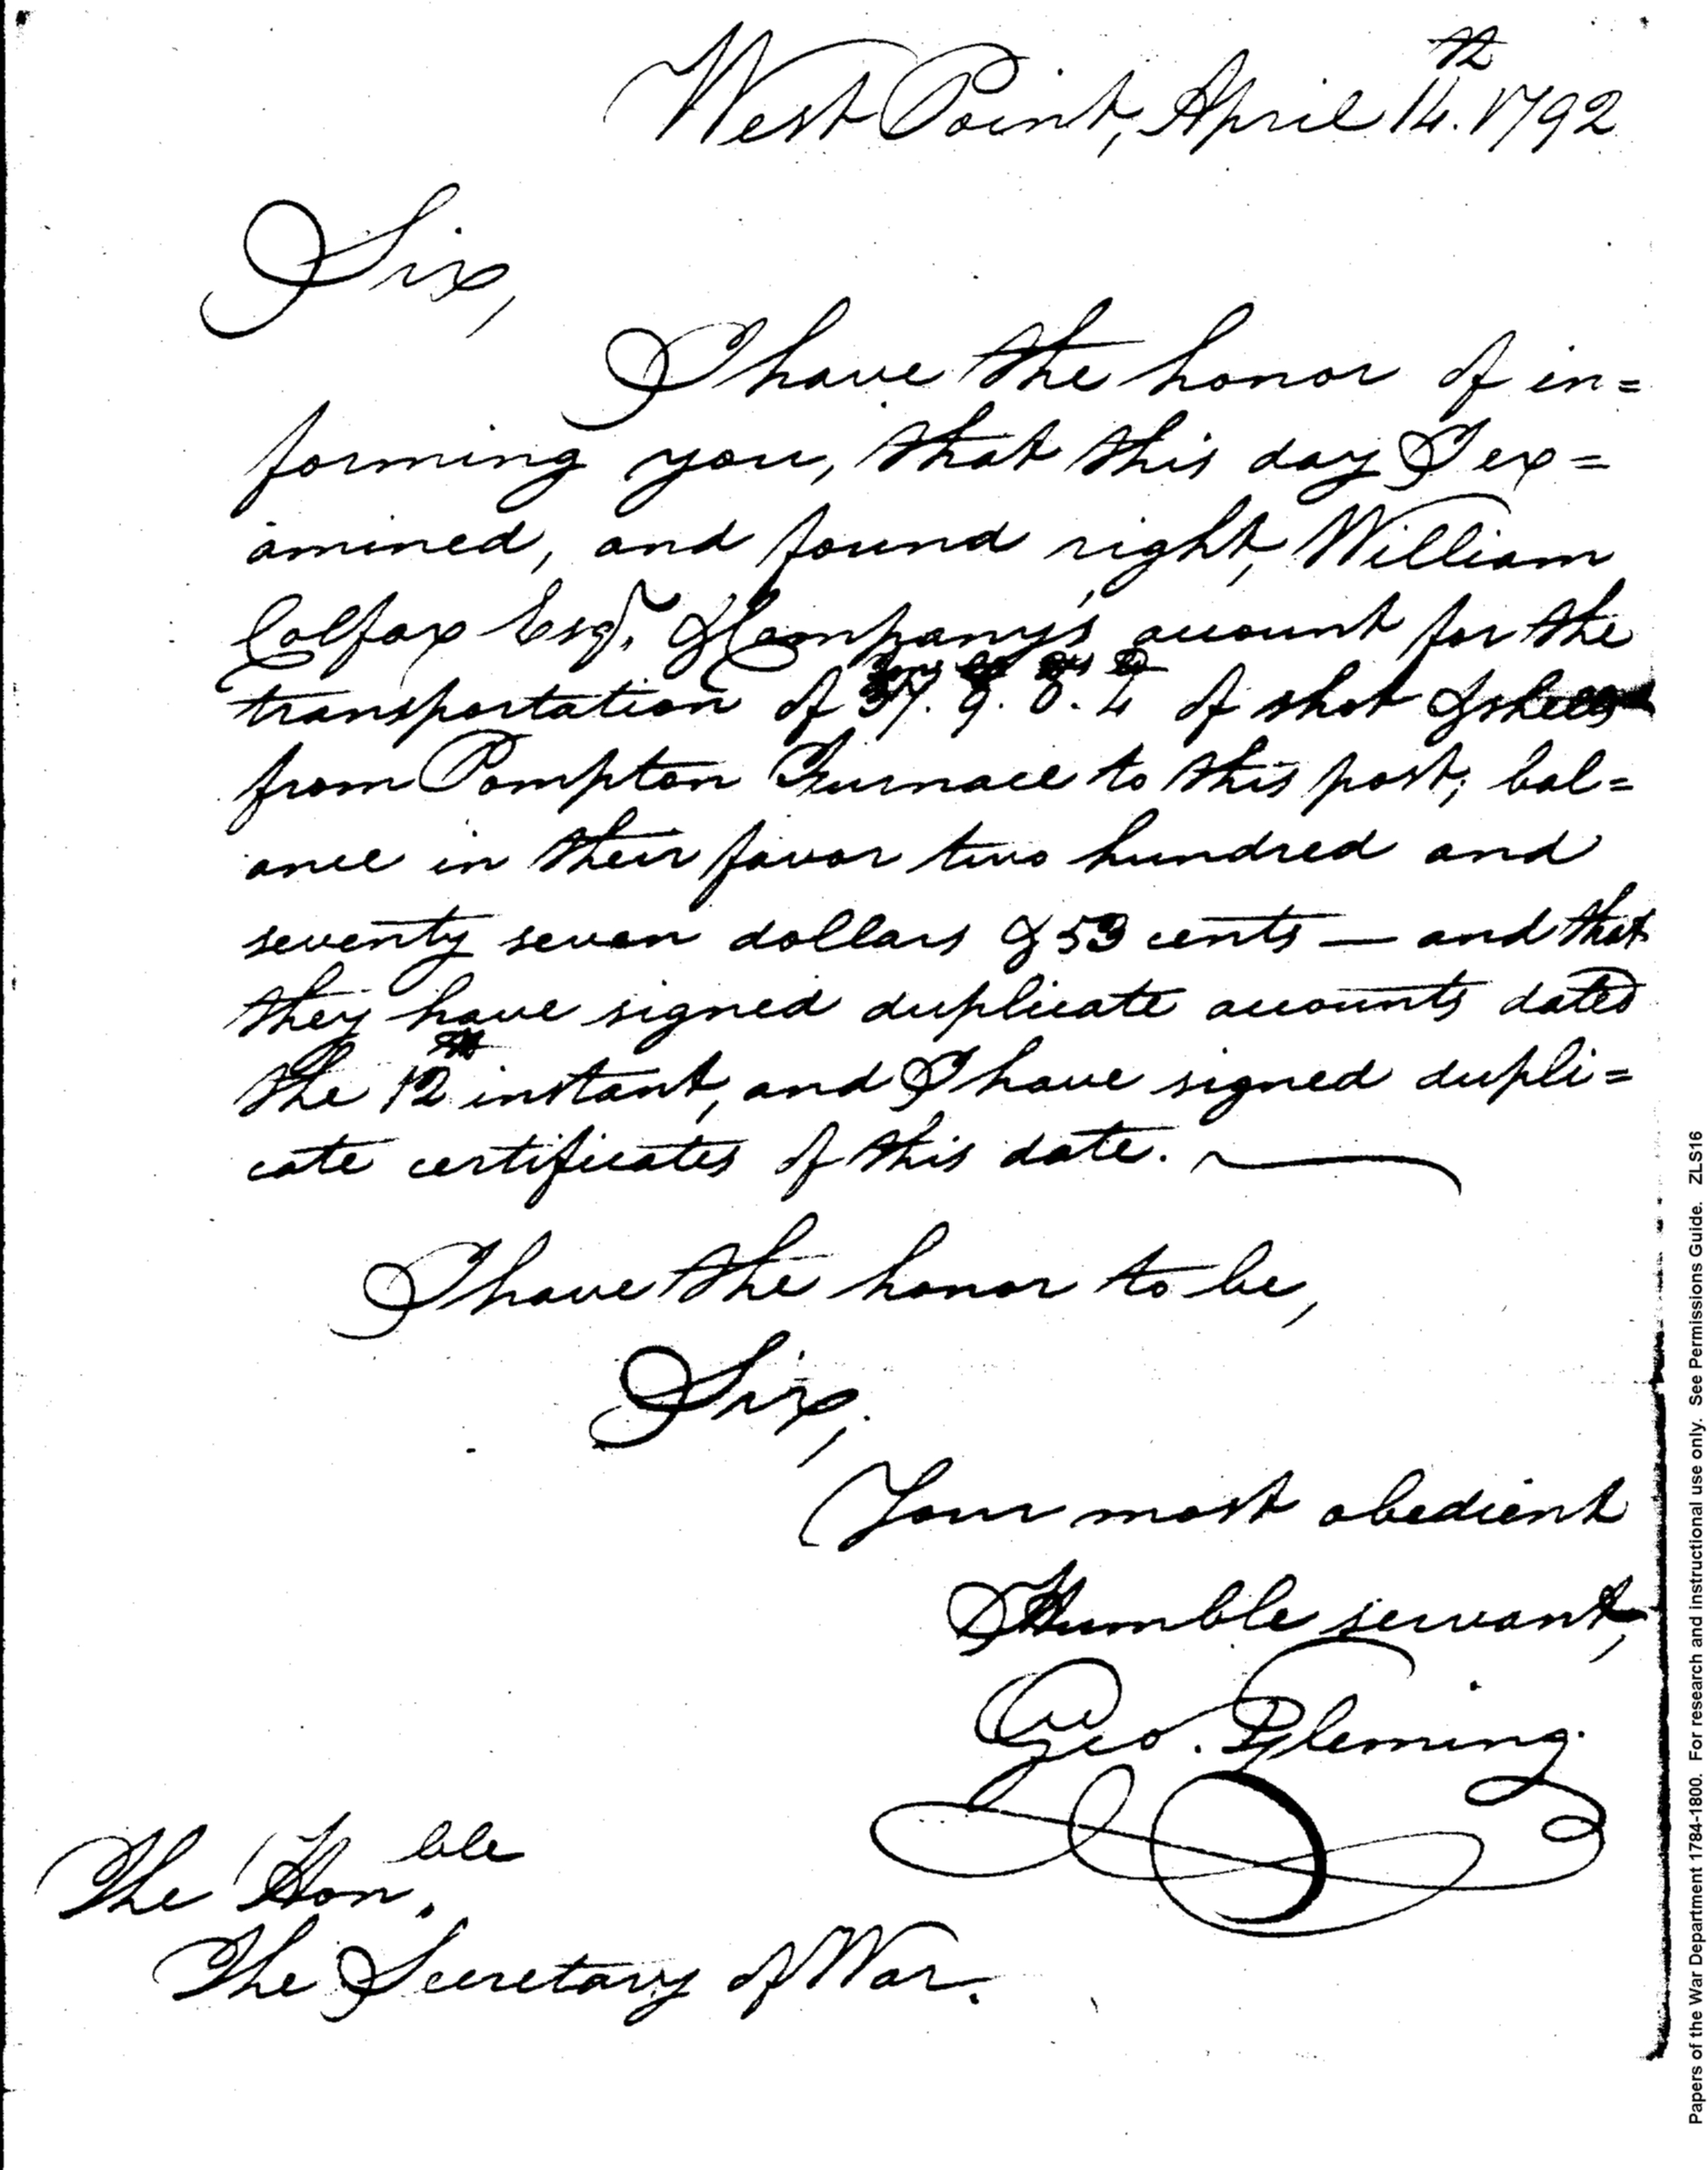 West Point, April 14th. 1792
Sir,
I have the honor of in=
forming you, that this day I ex=
amined, and found right, William
Colfax Esqr. & Company's account for the
transportation of 37. 9. 0. 4 of shot & shells
from Pompton Furnace to this post; bal=
ance in their favor two hundred and
seventy seven dollars & 53 cents — and that
they have signed duplicate accounts dated
the 12th instant, and I have signed dupli=
cate certificates of this date.
I have the honor to be,
Sir,
Your most obedient
& Humble servant,
Geo. Fleming
The Honble.
The Secretary of War.
Papers of the War Department 1784-1800. For research and instructional use only. See Permissions Guide. ZLS16